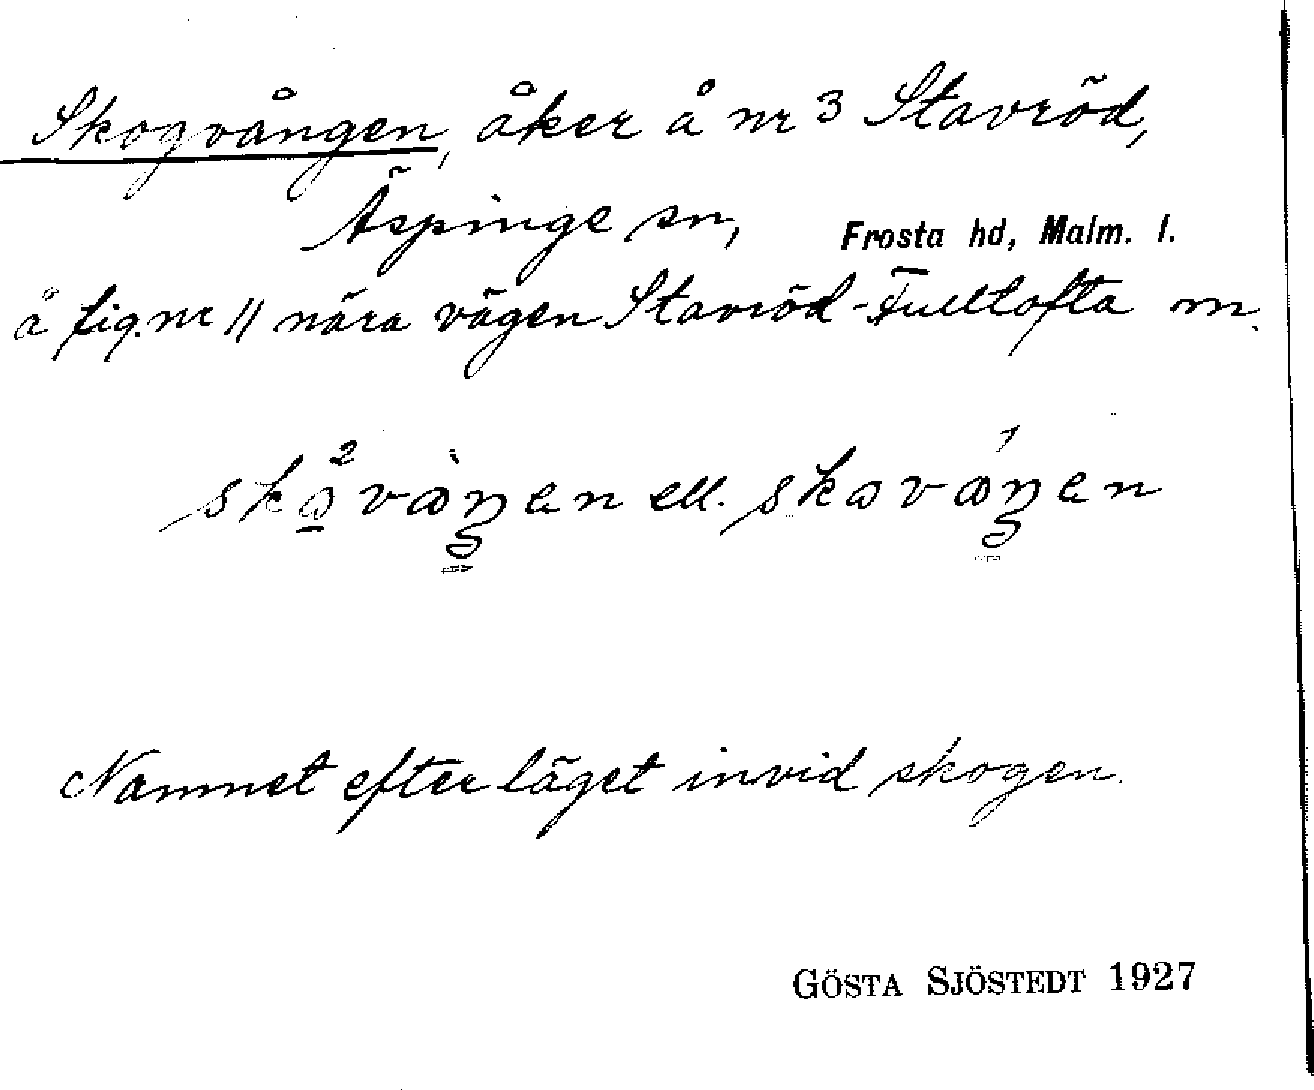 Skogvången, åker å nr 3 Stavröd,
Äspinge sn, Frosta hd, Malm. l.
å fig. nr 11 nära vägen Stavröd-Fulltofta m.
ell.
Namnet efter läget invid skogen.
GÖSTA SJÖSTEDT 1927